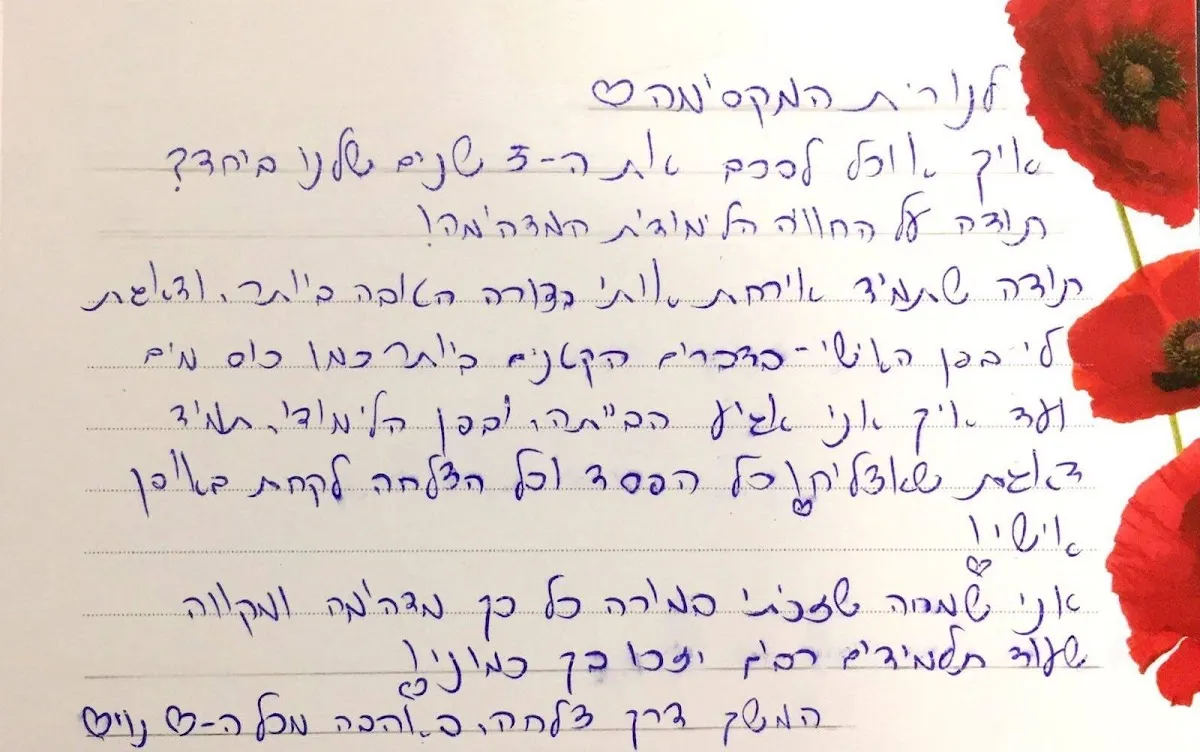 לנורית המקסימה♡
איך אוכל לסכם את ה-3 שנים שלנו ביחד?
תודה על החוויה הלימודית המדהימה!
תודה שתמיד אירחת אותי בצורה הטובה ביותר, ודאגת
לי בפן האישי - בדברים הקטנים ביותר כמו כוס מים
ועד איך אני אגיע הבייתה, ובפן הלימודי, תמיד
דאגת שאצליח! כל הפסד וכל הצלחה לקחת באופן
אישי!
אני שמחה שזכיתי במורה כל כך מדהימה ומקווה
שעוד תלמידים רבים יזכו בך כמוני!
המשך דרך צלחה, באהבה מכל ה-♡ נויש♡